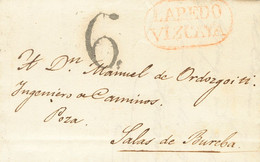 LAREDO
VIZCAYA
6.
A Dn Manuel de Ordozgoiti
Ingeniero de Caminos.
Poza.
Salas de Bureba